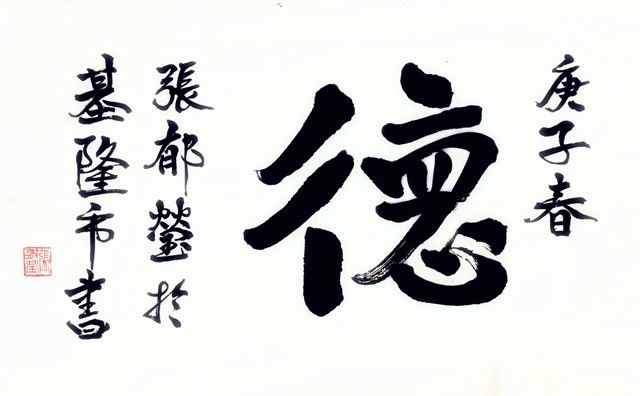 庚子春
德
張郁瑩於
基隆市書